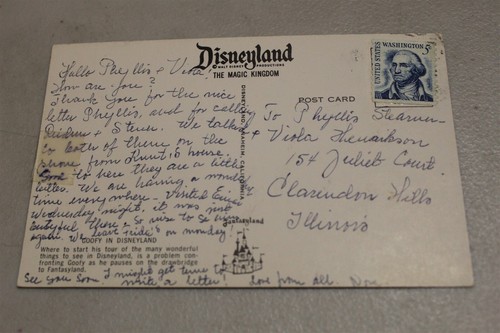 Disneyland
WALT DISNEY PRODUCTIONS
THE MAGIC KINGDOM
Hello Phyllis + Viola,
How are you?
Thank you for the nice
letter Phyllis, and for calling
+ Steve. We talked
to both of them on the
phone from house.
to here they are a little
letter. We are having a wonderful
time everywhere. Visited
Wednesday night, it was just
beautiful there + so nice to see
again. We leave on monday
GOOFY IN DISNEYLAND
Where to start his tour of the many wonderful
things to see in Disneyland, is a problem con-
fronting Goofy as he pauses on the drawbridge
to Fantasyland.
See you soon I might get time to
write a letter! Love from all
DISNEYLAND, ANAHEIM, CALIFORNIA
Disneyland
POST CARD
UNITED STATES
WASHINGTON 5c
To Phyllis
+ Viola Henrikson
154 Juliet Court.
Clarendon Hills
Illinois